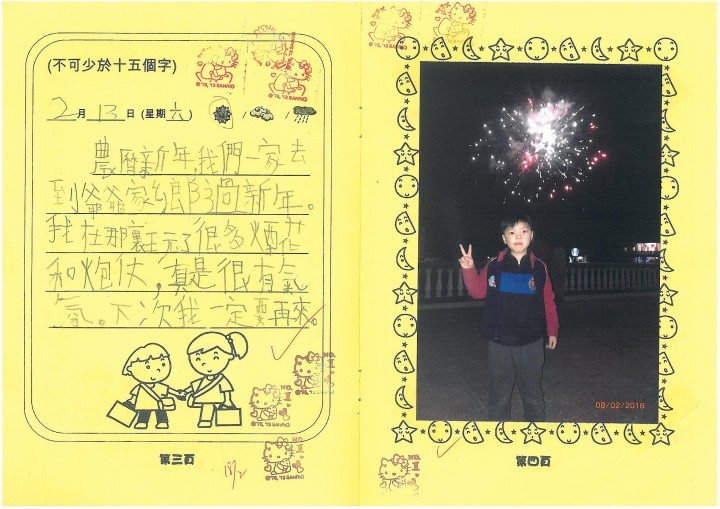 (不可少於十五個字)
2月13日(星期六) / /
農曆新年,我們一家去
到爺爺家鄉過新年。
我在那裏玩了很多煙花
和炮仗,真是很有氣
氛。下次我一定要再來。
第三頁
08/02/2016
第四頁